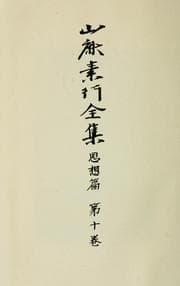 山鹿素行全集思想篇 第十卷